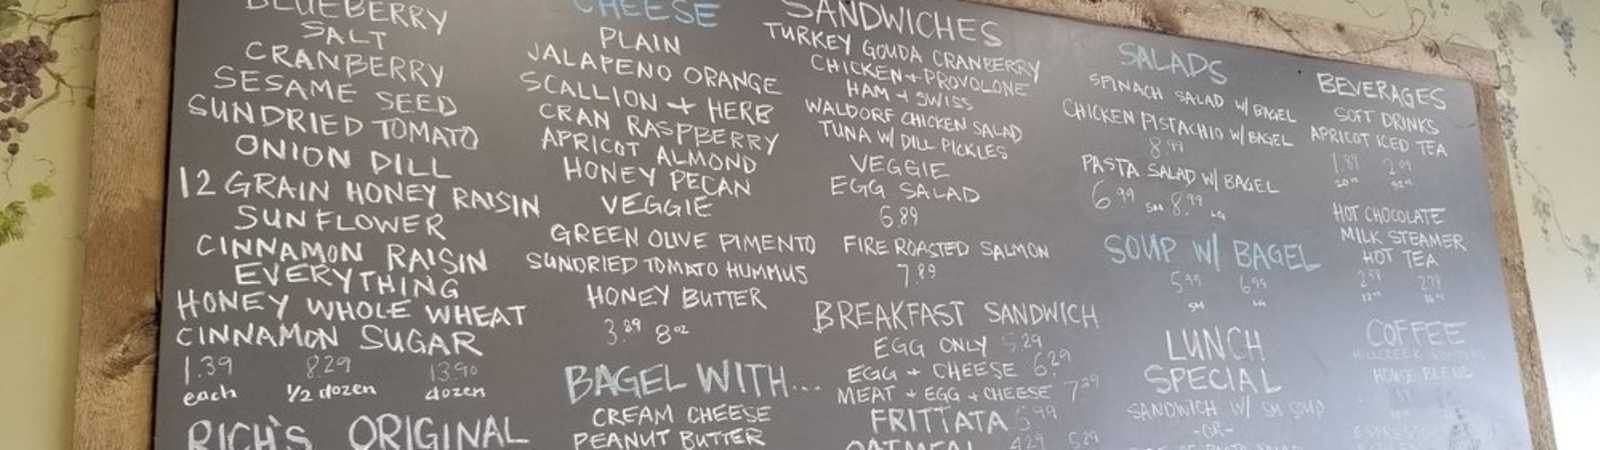 BLUEBERRY
SALT
CRANBERRY
SESAME SEED
SUNDRIED TOMATO
ONION DILL
12 GRAIN HONEY RAISIN
SUNFLOWER
CINNAMON RAISIN
EVERYTHING
HONEY WHOLE WHEAT
CINNAMON SUGAR
1.39 8.29 13.90
each 1/2 dozen dozen
RICH'S ORIGINAL
CHEESE
PLAIN
JALAPENO ORANGE
SCALLION + HERB
CRAN RASPBERRY
APRICOT ALMOND
HONEY PECAN
VEGGIE
GREEN OLIVE PIMENTO
SUNDRIED TOMATO HUMMUS
HONEY BUTTER
3.89 8oz
BAGEL WITH...
CREAM CHEESE
PEANUT BUTTER
SANDWICHES
TURKEY GOUDA CRANBERRY
CHICKEN + PROVOLONE
HAM + SWISS
WALDORF CHICKEN SALAD
TUNA W/ DILL PICKLES
VEGGIE
EGG SALAD
6.89
FIRE ROASTED SALMON
7.89
BREAKFAST SANDWICH
EGG ONLY 5.29
EGG + CHEESE 6.29
MEAT + EGG + CHEESE 7.29
FRITTATA 5.99
OATMEAL 4.29 5.29
SALADS
SPINACH SALAD W/ BAGEL
CHICKEN PISTACHIO W/ BAGEL
8.99
PASTA SALAD W/ BAGEL
6.99 sm 8.99 LG
SOUP W/ BAGEL
5.99 6.99
sm LG
LUNCH
SPECIAL
SANDWICH W/ SM SOUP
-OR-
BEVERAGES
SOFT DRINKS
APRICOT ICED TEA
HOT CHOCOLATE
MILK STEAMER
HOT TEA
COFFEE
HOUSE BLEND